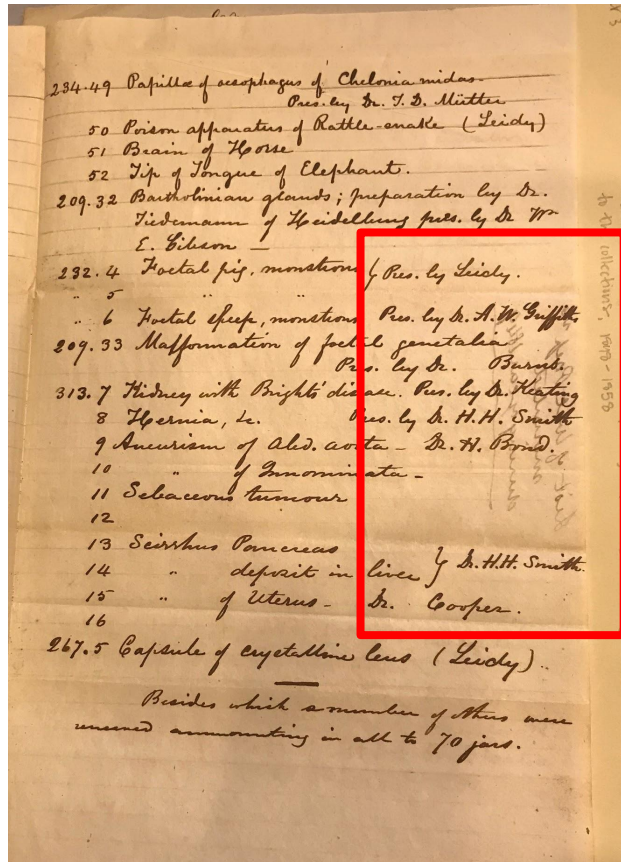 234.49 Papillæ of oesophagus of Chelonia midas-
Pres. by Dr. T. D. Mütter
50 Poison apparatus of Rattle-snake (Leidy)
51 Brain of Horse
52 Tip of Tongue of Elephant.
209.32 Bartholinian glands; preparation by Dr.
Tiedemann of Heidelburg pres. by Dr Wm
E. Gibson —
232.4 Foetal pig, monstrous } Pres. by Leidy.
" 5 " "
" 6 Foetal sheep, monstrous Pres. by Dr. A. W. Griffitts
209.33 Malformation of foetal genetalia
Pres. by Dr. Burns.
313.7 Kidney with Brights' disease. Pres. by Dr. Keating
8 Hernia, &c. Pres. by Dr. H.H. Smith
9 Aneurism of Abd. aorta - Dr. H. Bond.
10 " of Innominata -
11 Sebaceous tumour
12
13 Scirrhus Pancreas
14 " deposit in liver } Dr. H.H. Smith.
15 " of Uterus - Dr. Cooper.
16
267.5 Capsule of crystalline lens (Leidy)..
Besides which a number of others were
renewed ammounting in all to 70 jars.
to the collections, 1849-1858